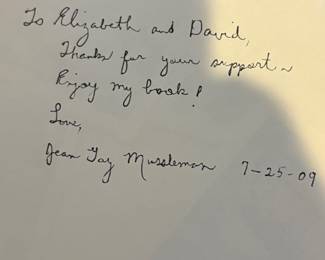 To Elizabeth and David,
Thanks for your support ~
Enjoy my book!
Love,
Jean Gay Mussleman 7-25-09